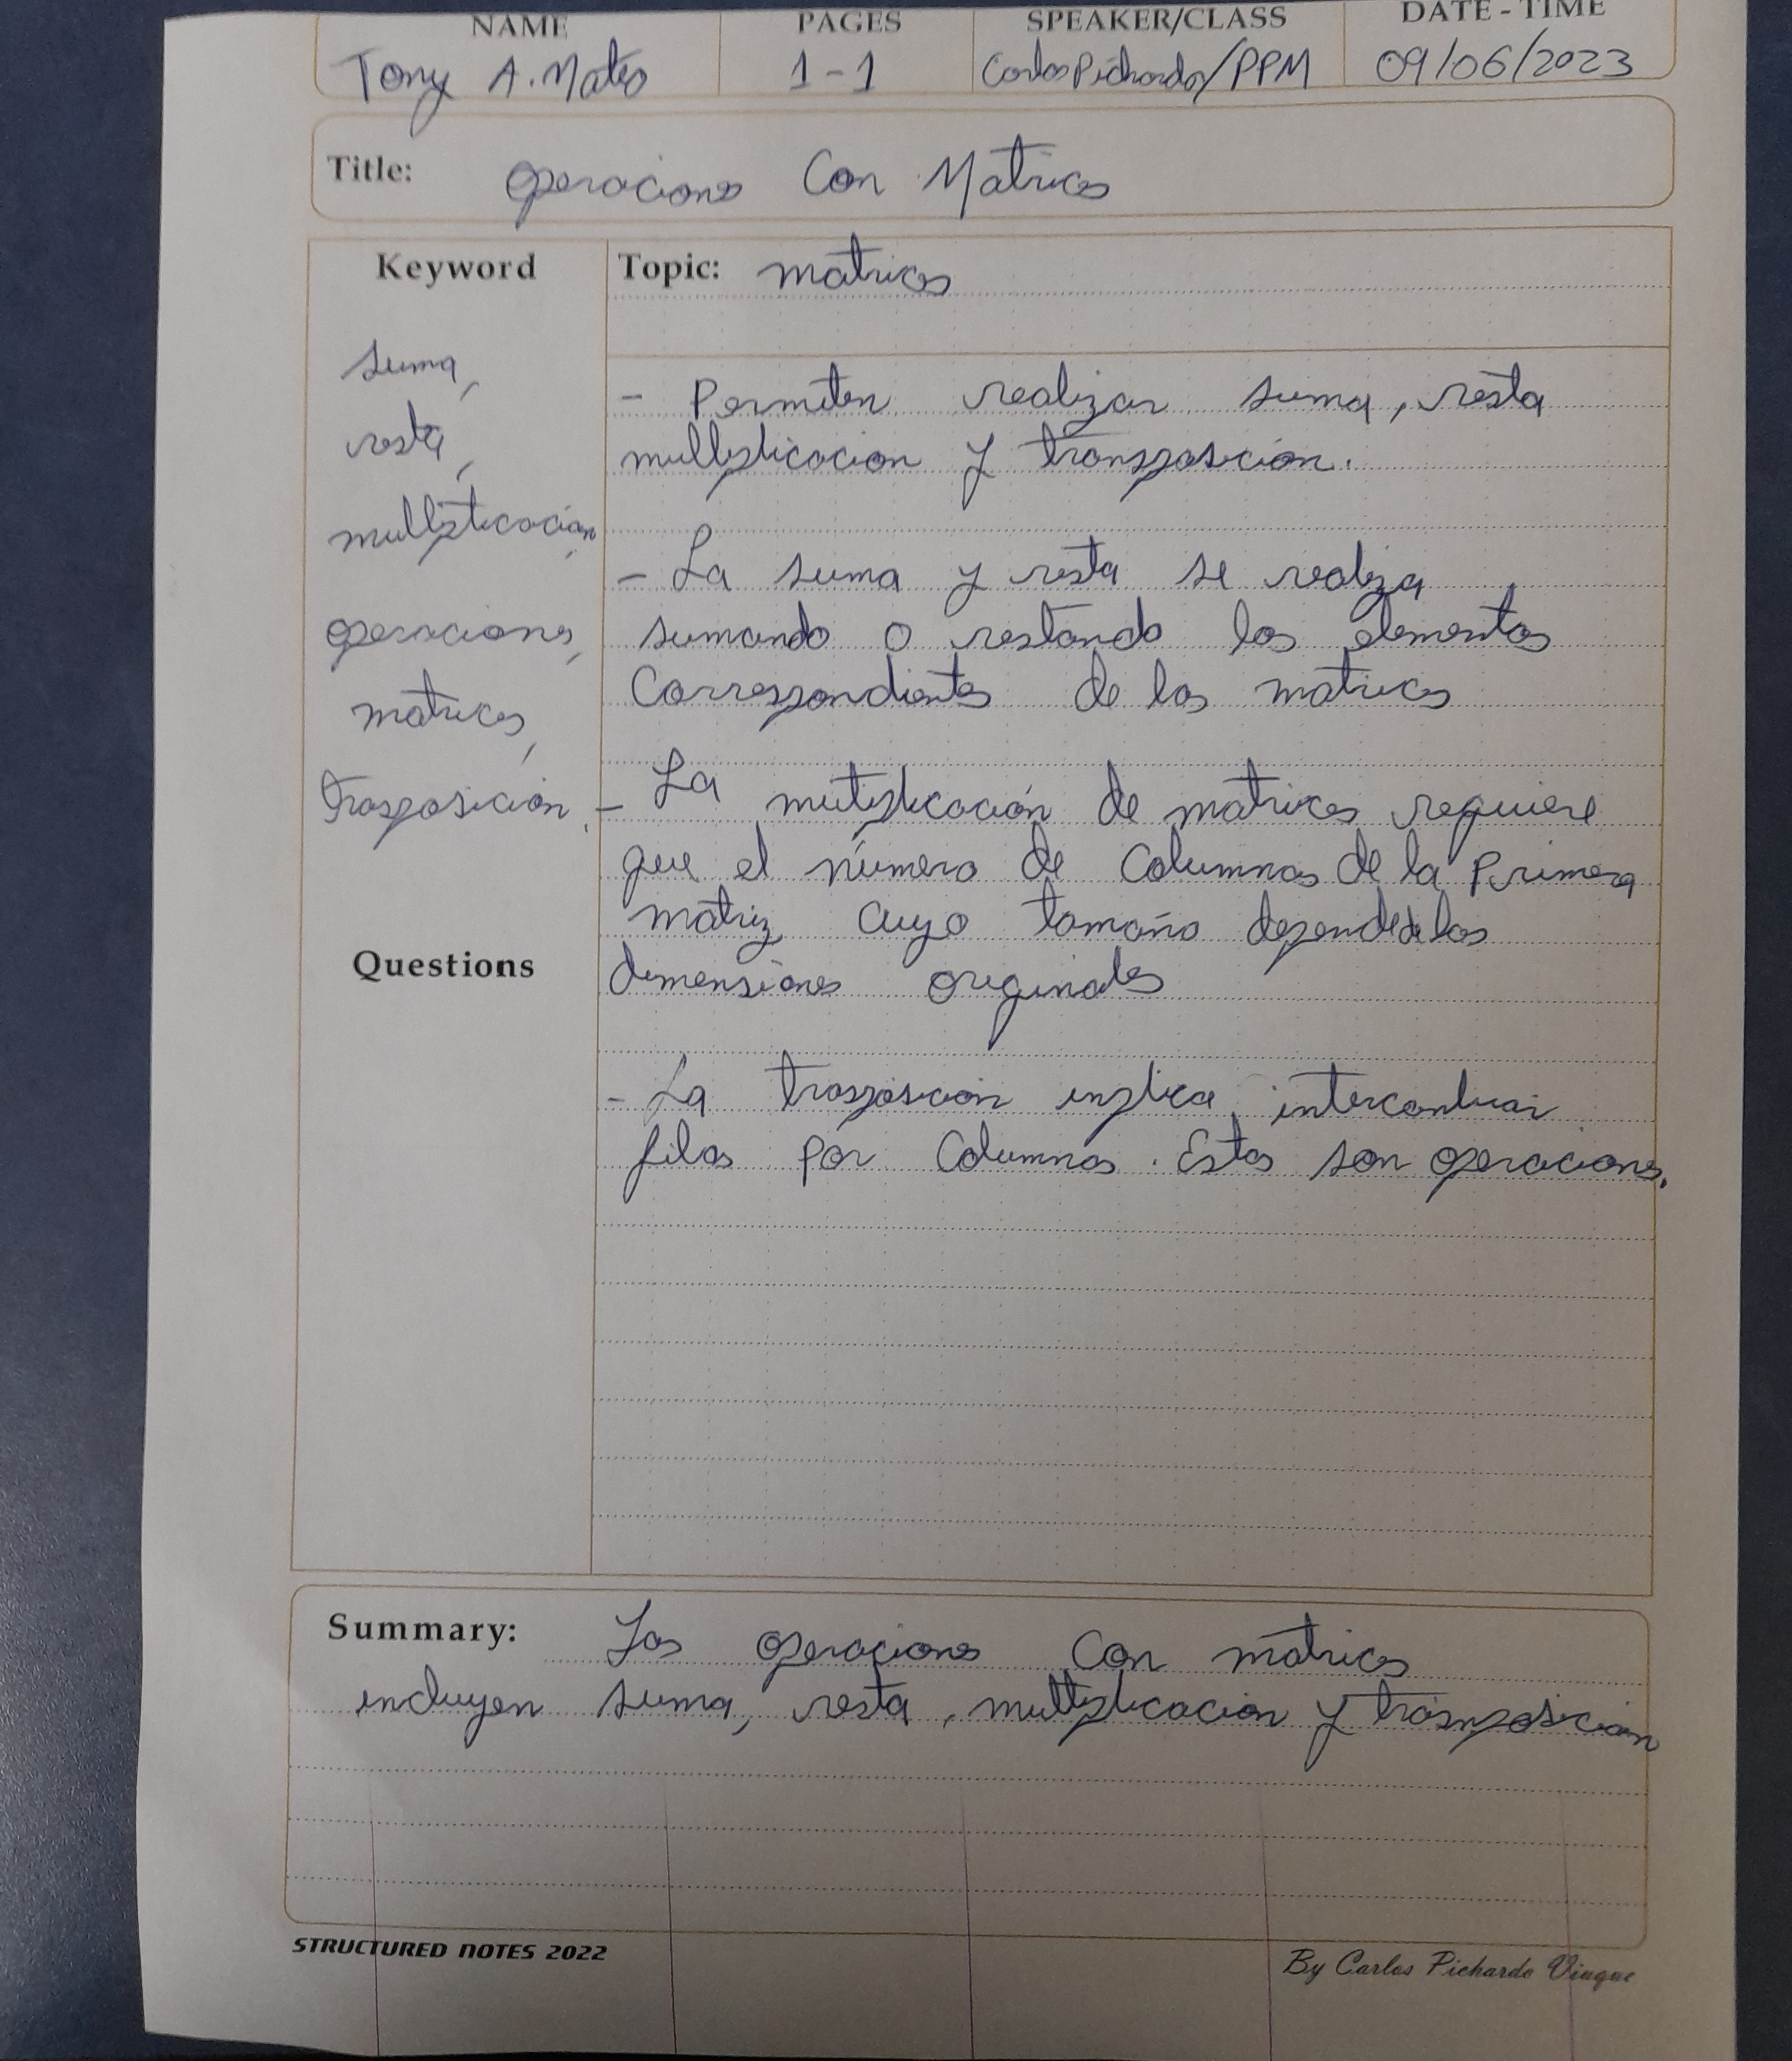 NAME PAGES SPEAKER/CLASS DATE-TIME
Tony A. Mateo 1-1 Carlos Pichardo/PPM 09/06/2023
Title: Operaciones Con Matrices
Keyword
suma,
resta,
multiplicación,
operaciones,
matrices,
trasposición.
Questions
Topic: matrices
- Permiten realizar suma, resta
multiplicacion y transposición.
- La suma y resta se realiza
sumando o restando los elementos
Correspondientes de las matrices
- La multiplicación de matrices requiere
que el número de Columnas de la Primera
matriz cuyo tamaño depende de las
dimensiones originales
- La trasposición implica intercambiar
filas por Columnas. Estas son operaciones.
Summary: Las operaciones Con matrices
incluyen suma, resta, multiplicacion y trasnposición
STRUCTURED NOTES 2022
By Carlos Pichardo Viuque